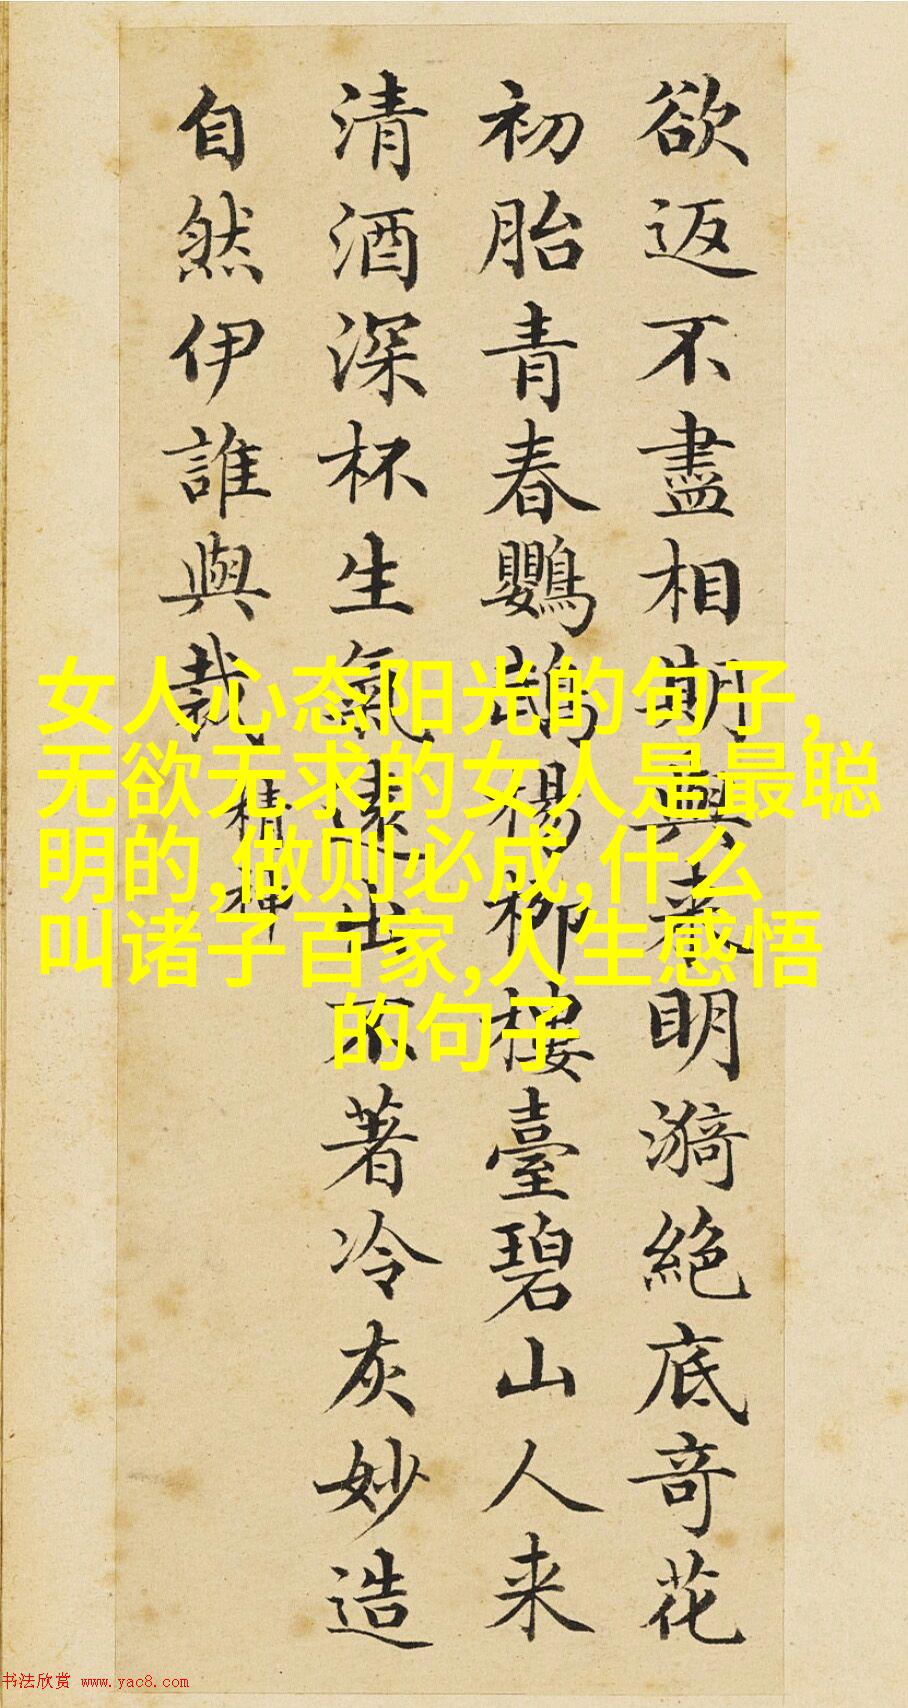 欲返不盡相期與來明漪絕底奇花
初胎青春鸚鵡楊柳樓臺碧山人来
清酒深杯生氣遠出不著冷灰妙造
自然伊誰與裁
精神
女人心态阳光的句子,
无欲无求的女人是最聪
明的,做则必成,什么
叫诸子百家,人生感悟
的句子
书法欣赏 www.yac8.com